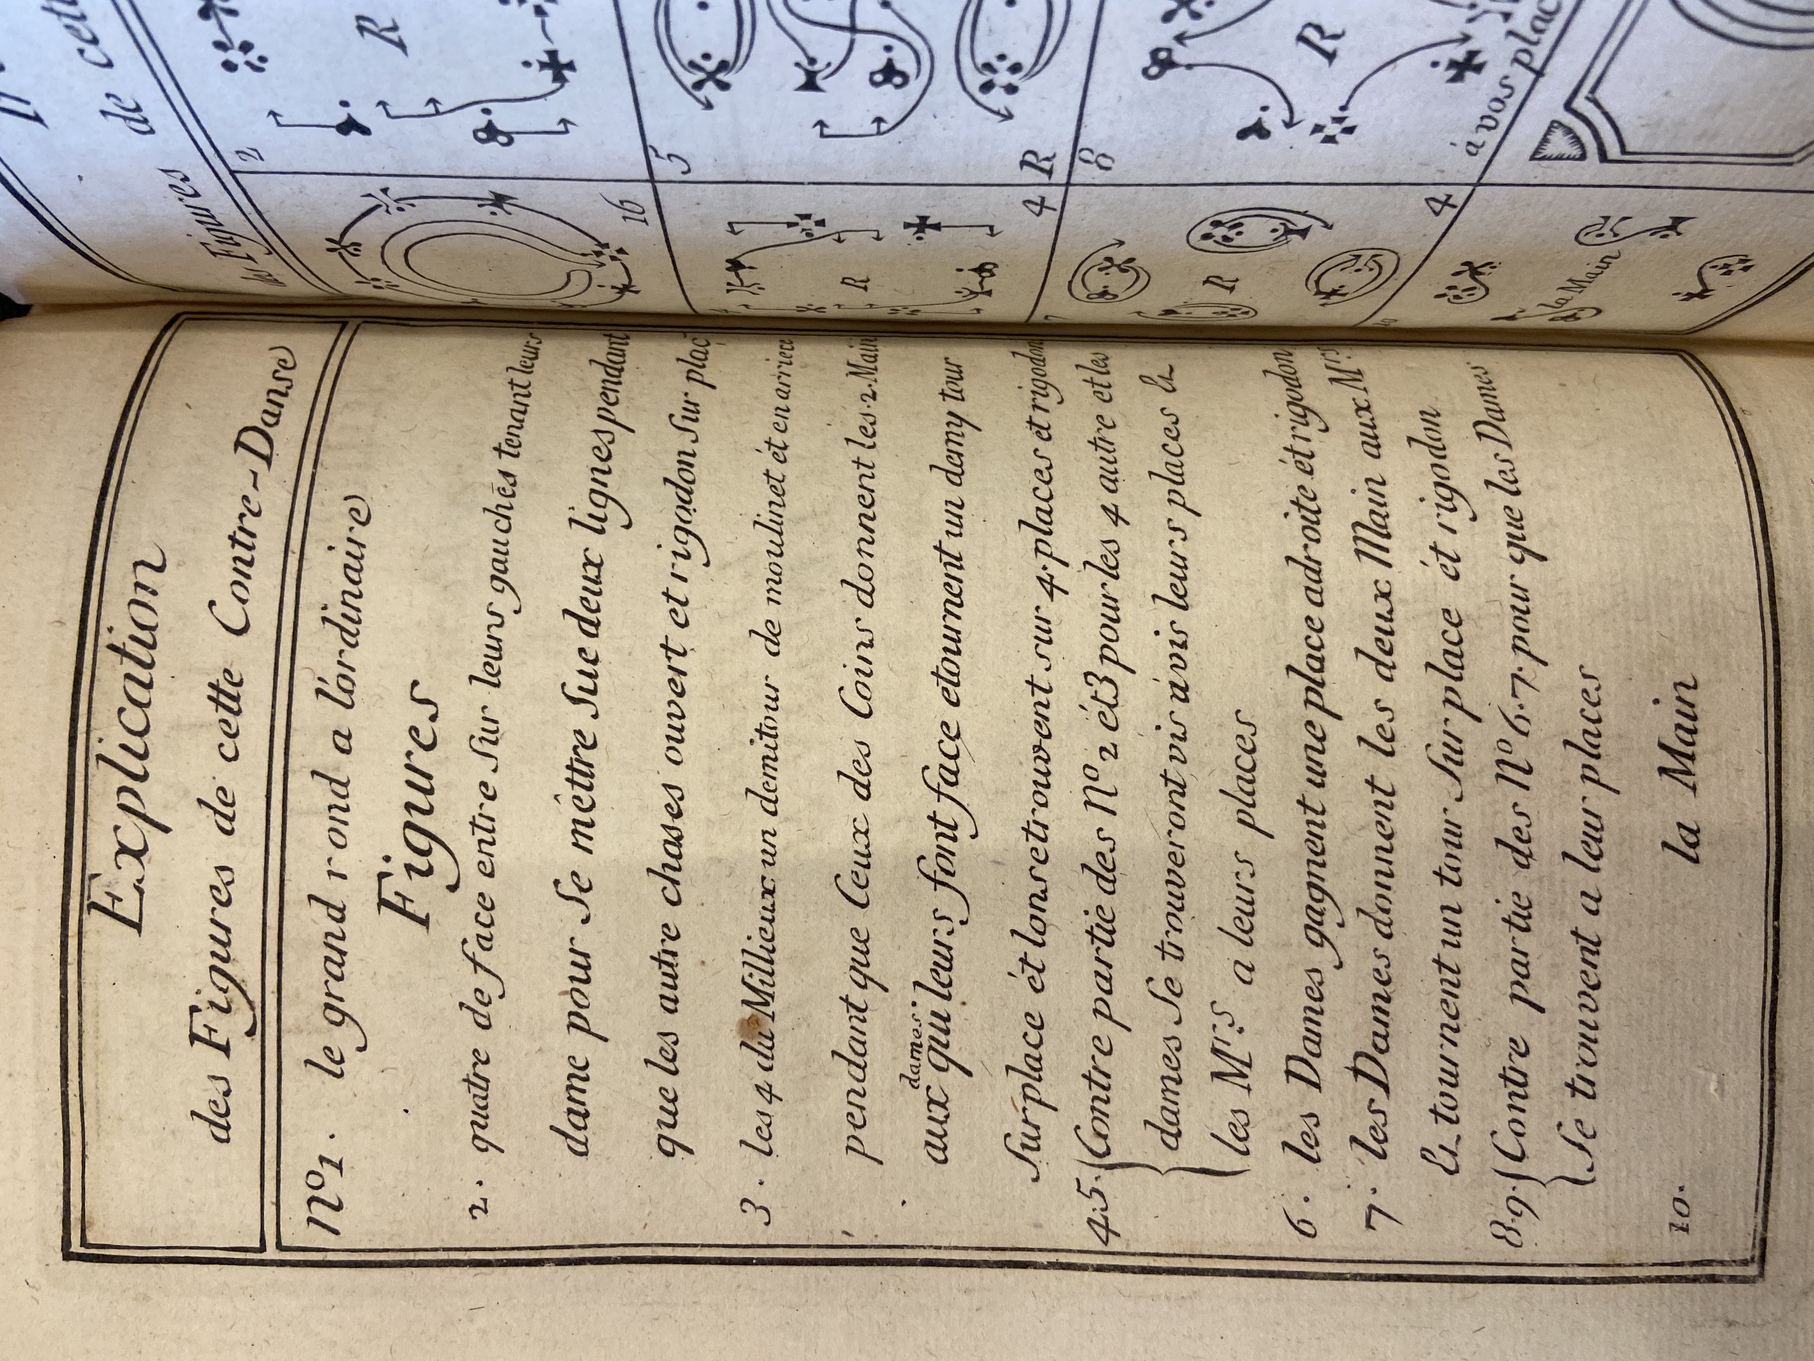 Explication
des Figures de cette Contre-Danse
No1. le grand rond a l'ordinaire
Figures
2. quatre de face entre sur leurs gauches tenant leurs
dame pour se mettre sue deux lignes pendant
que les autre chases ouvert et rigodon sur plac
3. les 4 du Millieux un demitour de moulinet ét en arriere
pendant que ceux des Coins donnent les 2 Main
aux dames qui leurs font face etournent un demy tour
sur place ét lonsetrouvent sur 4 places et rigodon
4.5. Contre partie des No 2 ét 3 pour les 4 autre et les
dames se trouveront vis avis leurs places &
les Mrs a leurs places
6. les Dames gagnent une place adroite ét rigodon
7. les Dames donnent les deux Main aux Mrs
Et tournent un tour sur place ét rigodon
8.9. Contre partie des No 6.7. pour que les Dames
se trouvent a leur places
10. la Main
de cett
des Figures
2
R
16
5
R
4 R
8
R
R
4
à vos plac
la Main